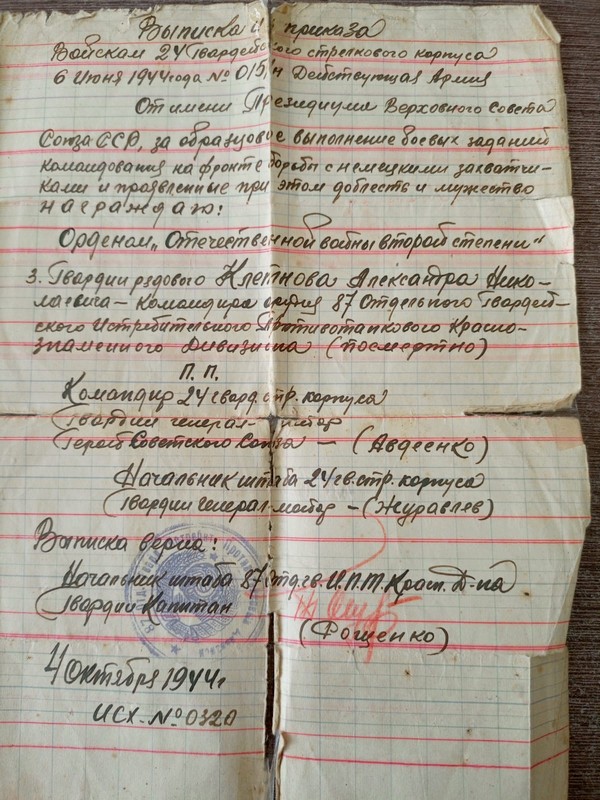 Выписка из приказа
Войскам 24 Гвардейского стрелкового корпуса
6 Июня 1944 года № 015/н Действующая Армия
От имени Президиума Верховного Совета
Союза ССР, за образцовое выполнение боевых заданий
командования на фронте борьбы с немецкими захватчи-
ками и проявленные при этом доблесть и мужество
награждаю:
Орденом „Отечественной войны второй степени"
3. Гвардии рядового Клетнова Александра Нико-
лаевича – Командира орудия 87 Отдельного Гвардей-
ского Истребительного Противотанкового Красно-
знаменного Дивизиона (посмертно)
П. П.
Командир 24 гвард. стр. корпуса
Гвардии генерал-майор
Герой Советского Союза – (Авдеенко)
Начальник штаба 24 гв. стр. корпуса
Гвардии Генерал-майор – (Журавлев)
Выписка верна:
Начальник штаба 87 отд. гв. И.П.Т. Красн. Д-на
Гвардии Капитан
(Фощенко)
4 Октября 1944 г
исх. № 0320